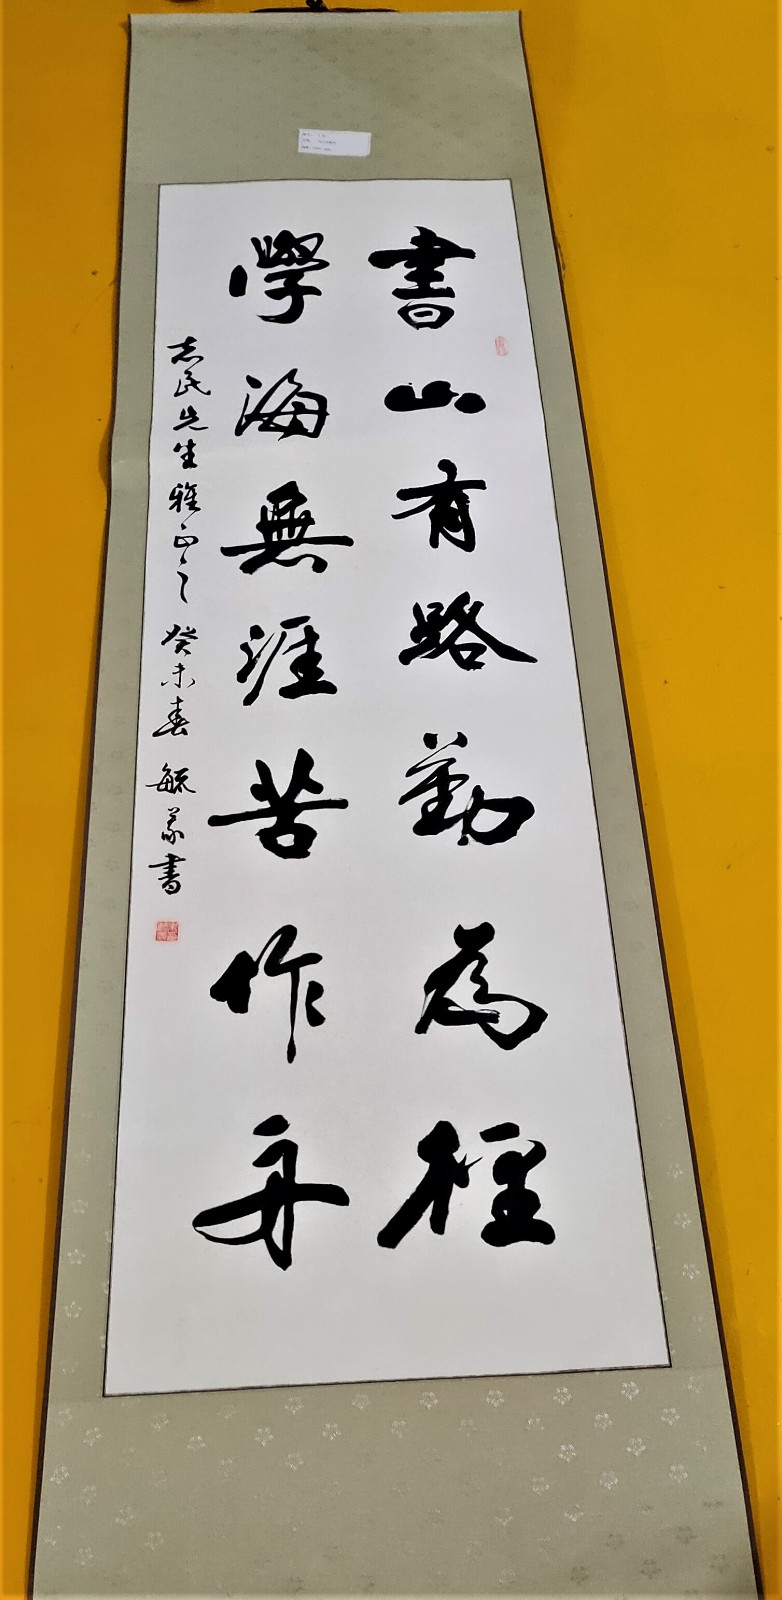 書山有路勤為徑
學海無涯苦作舟
志民先生雅正之 癸未春 毓義書